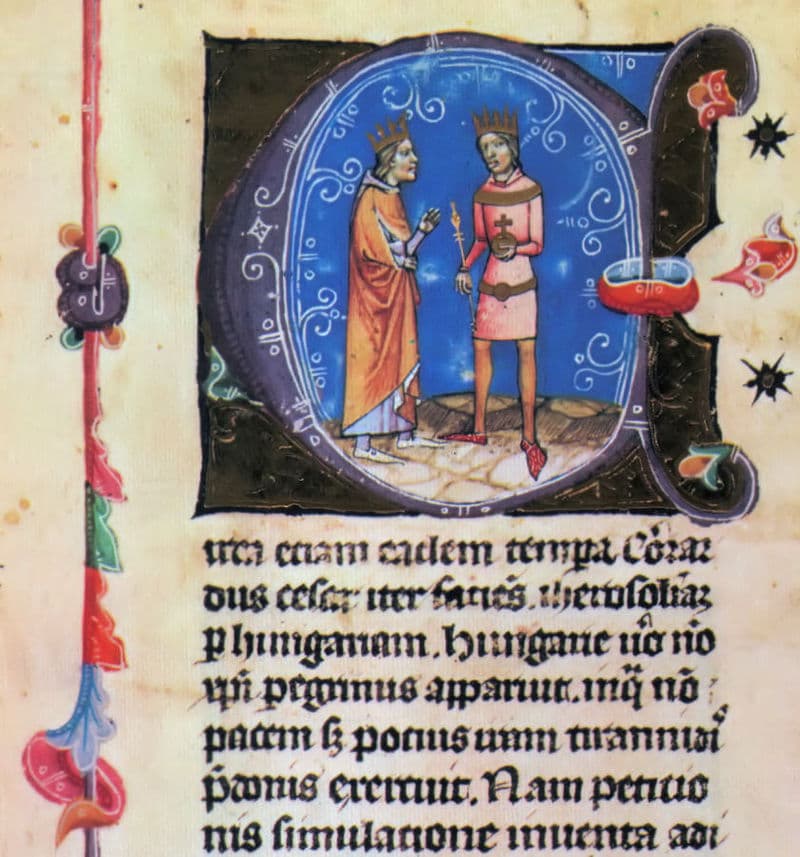 Circa etiam eadem tempa Cōrar
dus cesar iter faciēs. iherosolimaz
p hungariam. hungarie uo nō
xpi pegrinus apparuit. inq nō
pacem sz pocius uiam tirannidi
pdonis exercuit. Nam peticio
nis simulatione inuenta adi